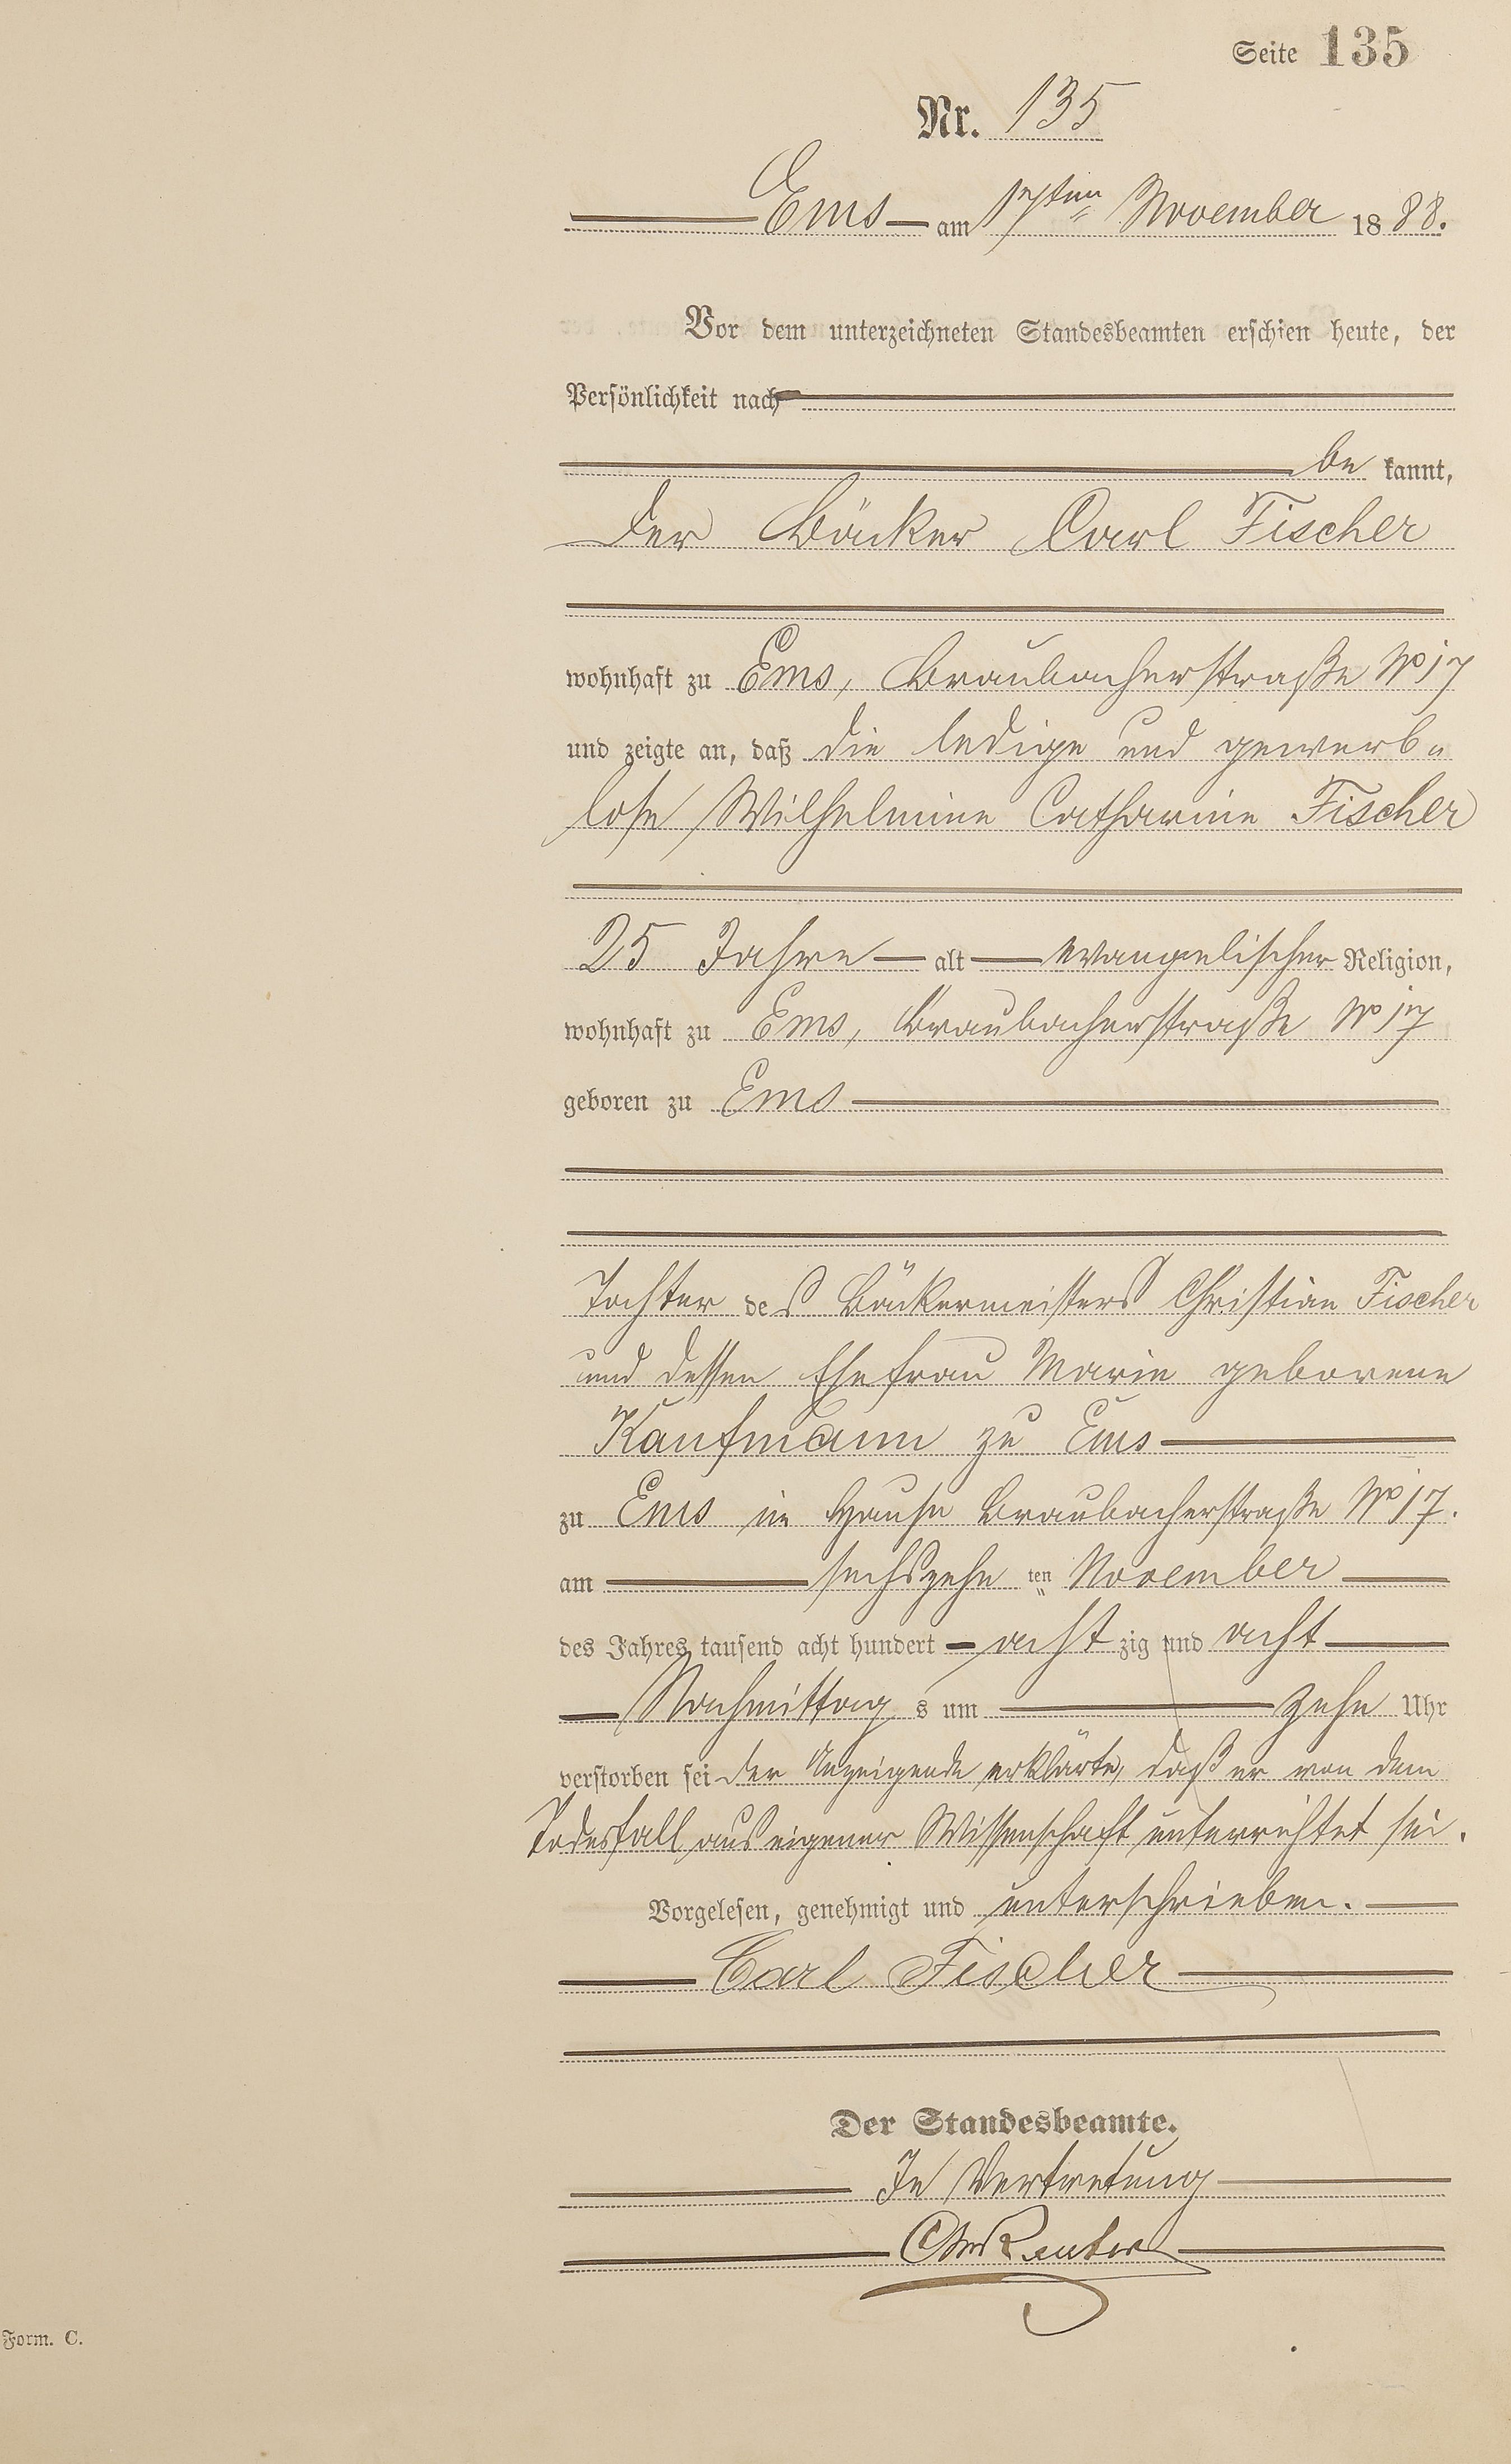 Seite 135
Nr. 135
Ems am 17ten November 1888.
Vor dem unterzeichneten Standesbeamten erschien heute, der
Persönlichkeit nach
be kannt,
der Bäcker Carl Fischer
wohnhaft zu Ems, Braubacherstraße No 17
und zeigte an, daß die ledige und gewerb„
lose Wilhelmine Catharine Fischer
25 Jahre alt evangelischer Religion,
wohnhaft zu Ems, Braubacherstraße No 17
geboren zu Ems
Tochter des Bäckermeisters Christian Fischer
und dessen Ehefrau Marie geborene
Kaufmann zu Ems
zu Ems im Hause Braubacherstraße No 17.
am sechszehn ten November
des Jahres tausend acht hundert acht zig und acht
Nachmittag s um zehn Uhr
verstorben sei der Anzeigende erklärte, daß er von dem
Todesfall aus eigener Wissenschaft unterrichtet sei.
Vorgelesen, genehmigt und unterschrieben.
Carl Fischer
Der Standesbeamte.
In Vertretung
Form. C.